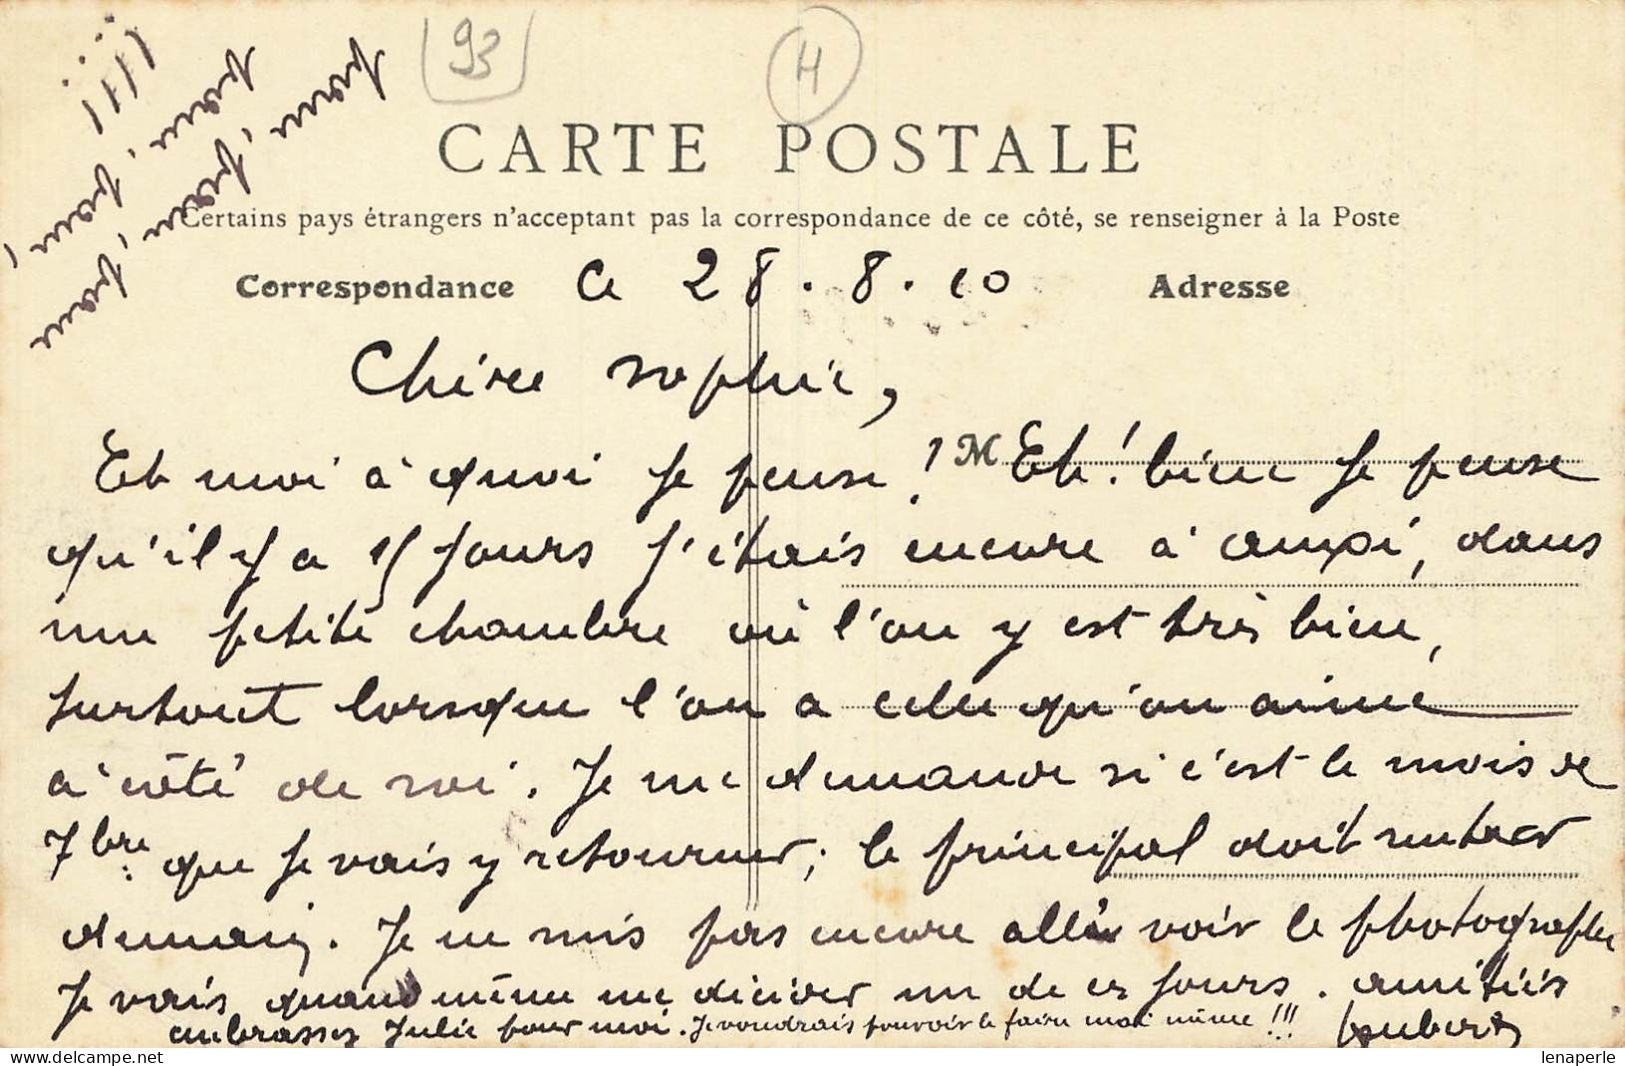 93
H
CARTE POSTALE
Certains pays étrangers n'acceptant pas la correspondance de ce côté, se renseigner à la Poste
Correspondance
Adresse
Ce 28.8.10
Chère Sophie,
M
Et moi à quoi je pense! Eh! bien je pense
qu'il y a 15 jours j'étais encore à ici, dans
une petite chambre où l'on y est très bien,
surtout lorsque l'on a celui qu'on aime
à côté de soi. Je me demande si c'est le mois de
7bre que je vais y retourner; le principal doit rentrer
demain. Je ne suis pas encore allée voir le photographe
Je vais quand même me décider un de ces jours. amitiés
embrassez Julie pour moi. Je voudrais pouvoir le faire moi même!!!
Hubert